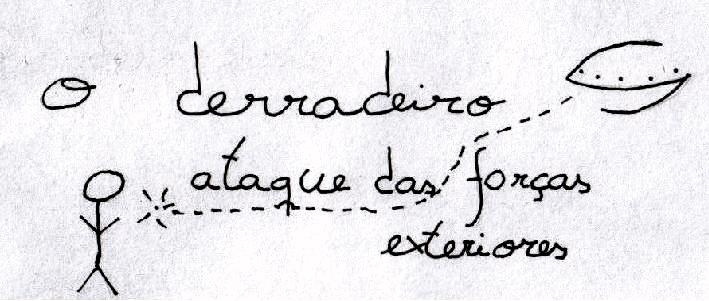 O derradeiro
ataque das forças
exteriores